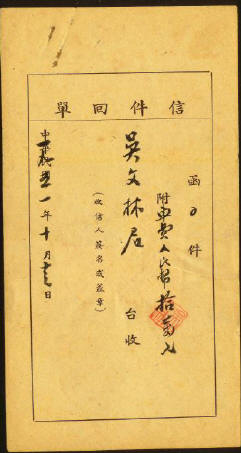 信件回單
函 件
附車費人民幣拾萬元
吳文林君 台收
(收信人簽名或蓋章)
一年十月 日